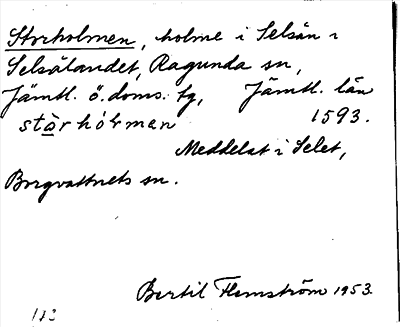 Storholmen, holme i Selsån i
Selsålandet, Ragunda sn,
Jämtl. ö. doms. tg, Jämtl. län
stàrhólman 1593.
Meddelat i Selet,
Borgvattnets sn.
Bertil Flemström 1953.
113